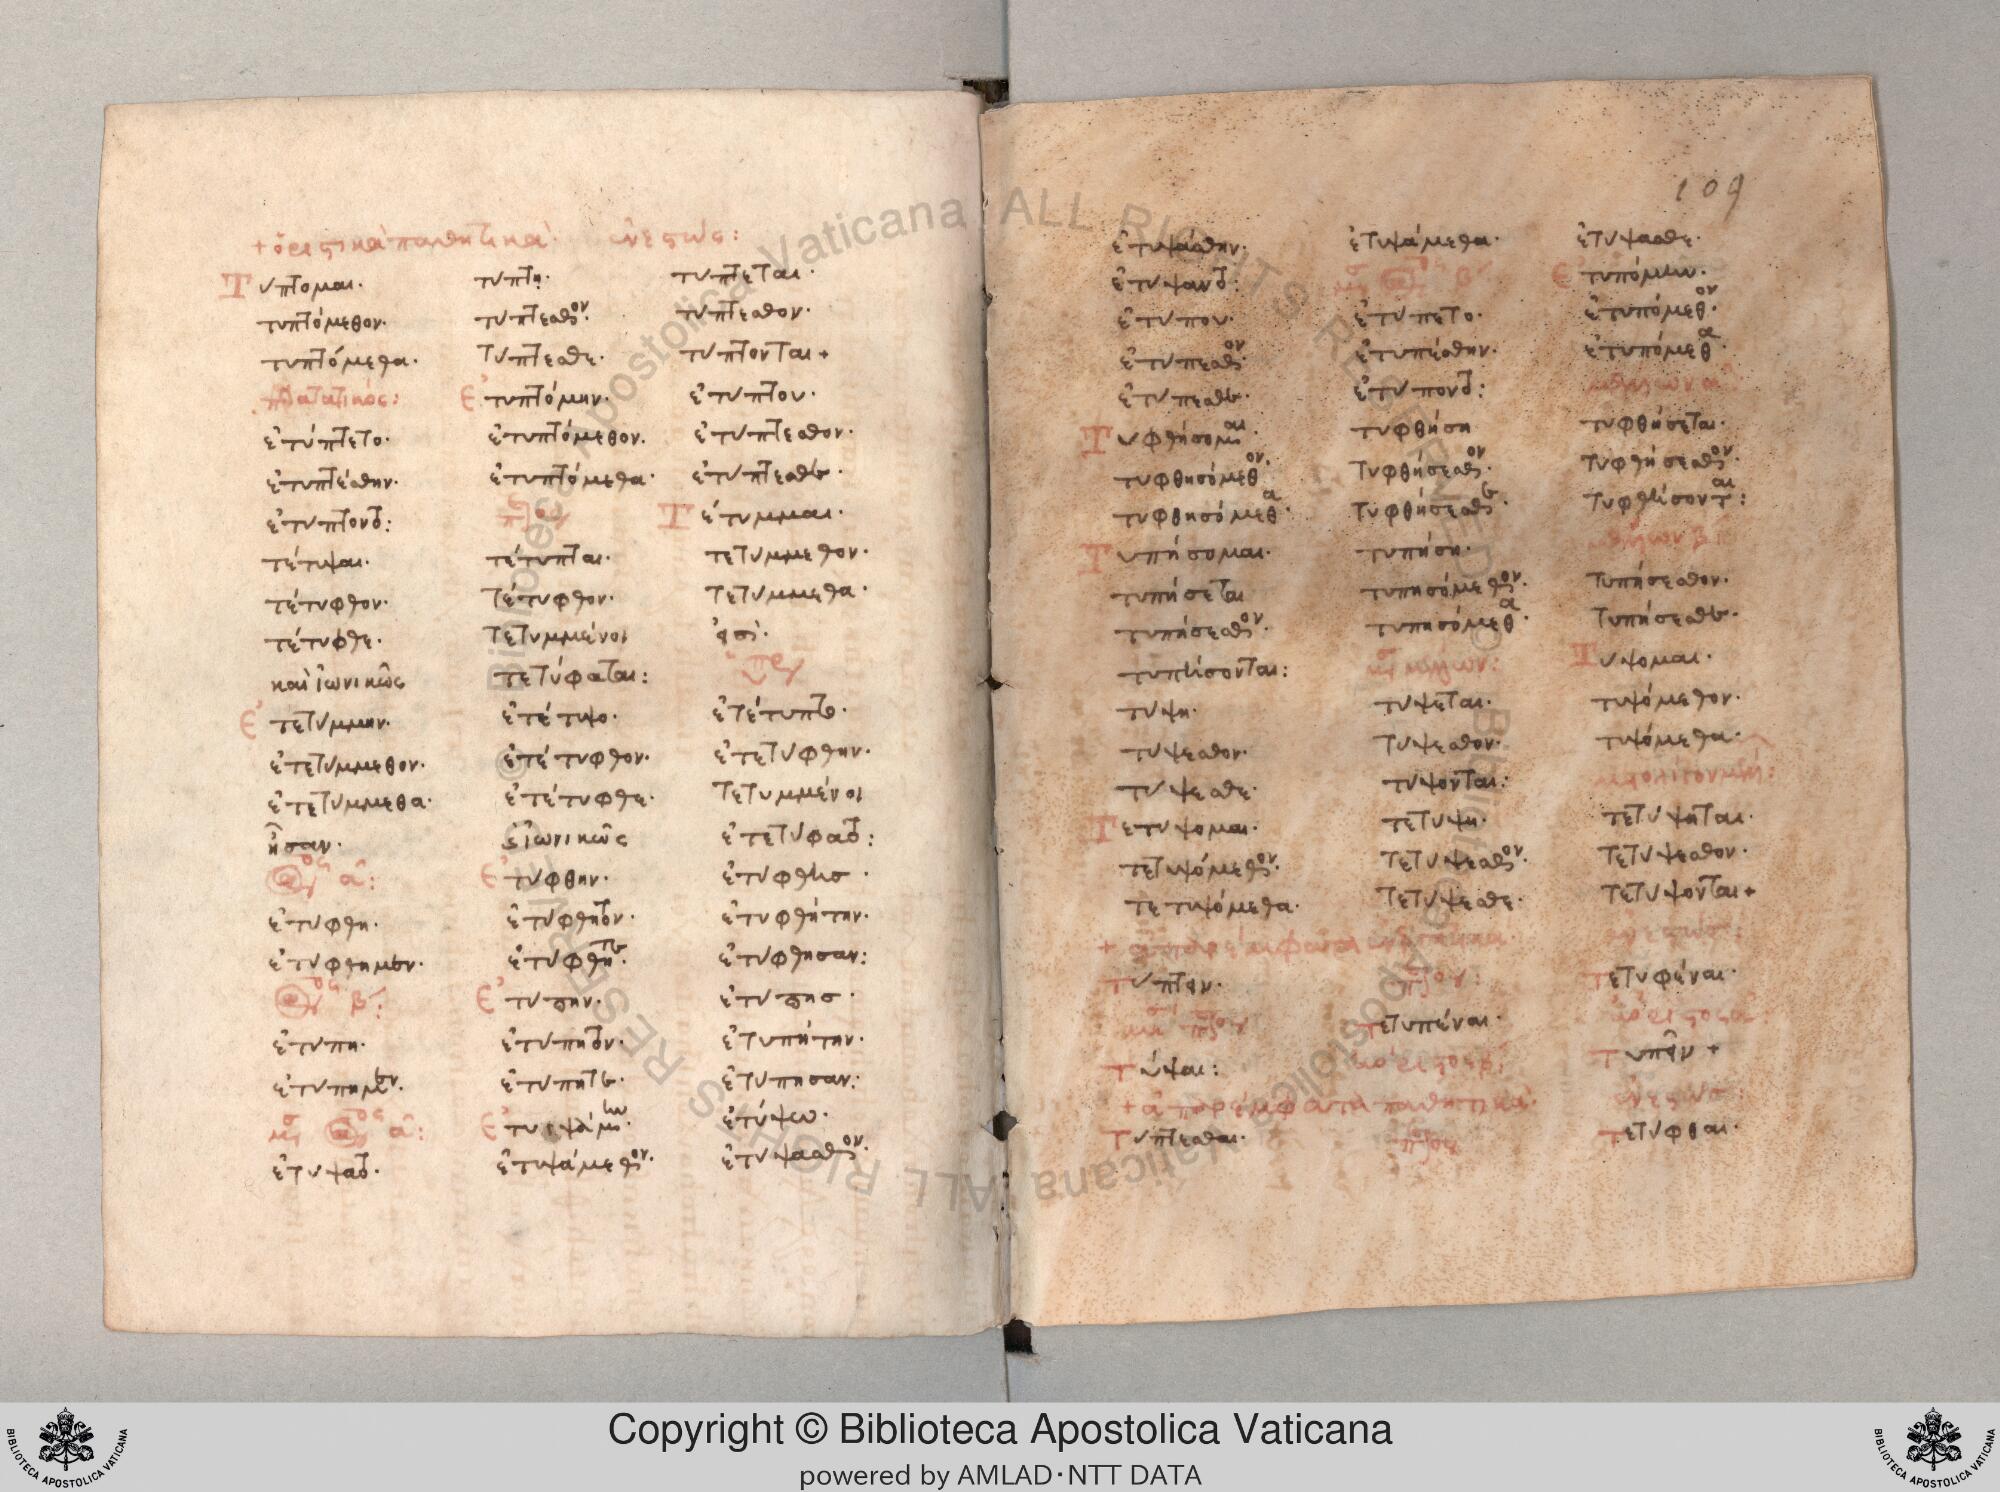 + ὁριστικὰ παθητικὰ· ἐνεστώς:
Τύπτομαι· τύπτῃ· τύπτεται·
τυπτόμεθον· τύπτεσθον· τύπτεσθον·
τυπτόμεθα· τύπτεσθε· τύπτονται +
παρατατικός: ἐτυπτόμην· ἐτύπτου·
ἐτύπτετο· ἐτυπτόμεθον· ἐτύπτεσθον·
ἐτυπτέσθην· ἐτυπτόμεθα· ἐτύπτεσθε·
ἐτύπτοντο: Τέτυμμαι·
τέτυψαι· τέτυπται· τετύμμεθον·
τέτυφθον· τέτυφθον· τετύμμεθα·
τέτυφθε· τετυμμένοι εἰσὶ·
καὶ ἰωνικῶς τετύφαται:
ἐτετύμμην· ἐτέτυψο· ἐτέτυπτο·
ἐτετύμμεθον· ἐτέτυφθον· ἐτετύφθην·
ἐτετύμμεθα· ἐτέτυφθε· τετυμμένοι
ἦσαν· ἰωνικῶς ἐτετύφατο:
α: ἐτύφθην· ἐτύφθης·
ἐτύφθη· ἐτύφθητον· ἐτυφθήτην·
ἐτύφθημεν· ἐτύφθητε· ἐτύφθησαν:
β: ἐτύπην· ἐτύπης·
ἐτύπη· ἐτύπητον· ἐτυπήτην·
ἐτύπημεν· ἐτύπητε· ἐτύπησαν:
α: ἐτυψάμην· ἐτύψω·
ἐτύψατο· ἐτυψάμεθον· ἐτύψασθον·
109
ἐτυψάσθην· ἐτυψάμεθα· ἐτύψασθε·
ἐτύψαντο: β ἐτυπόμην·
ἐτύπου· ἐτύπετο· ἐτυπόμεθον·
ἐτύπεσθον· ἐτυπέσθην· ἐτυπόμεθα·
ἐτύπεσθε· ἐτύποντο:
Τυφθήσομαι· τυφθήσῃ τυφθήσεται·
τυφθησόμεθον· τυφθήσεσθον· τυφθήσεσθον·
τυφθησόμεθα· τυφθήσεσθε· τυφθήσονται:
Τυπήσομαι· τυπήσῃ·
τυπήσεται τυπησόμεθον· τυπήσεσθον·
τυπήσεσθον· τυπησόμεθα· τυπήσεσθε·
τυπήσονται: Τύψομαι·
τύψῃ· τύψεται· τυψόμεθον·
τύψεσθον· τύψεσθον· τυψόμεθα·
τύψεσθε· τύψονται:
Τετύψομαι· τετύψῃ· τετύψηται·
τετυψόμεθον· τετύψεσθον· τετύψεσθον·
τετυψόμεθα· τετύψεσθε· τετύψονται +
+ ἀπαρέμφατα
τύπτειν· τετυφέναι·
τετυπέναι·
τύψαι: τυπεῖν +
+ ἀπαρέμφατα παθητικὰ·
τύπτεσθαι· τετύφθαι·
Copyright © Biblioteca Apostolica Vaticana
powered by AMLAD·NTT DATA
BIBLIOTECA APOSTOLICA VATICANA
BIBLIOTECA APOSTOLICA VATICANA